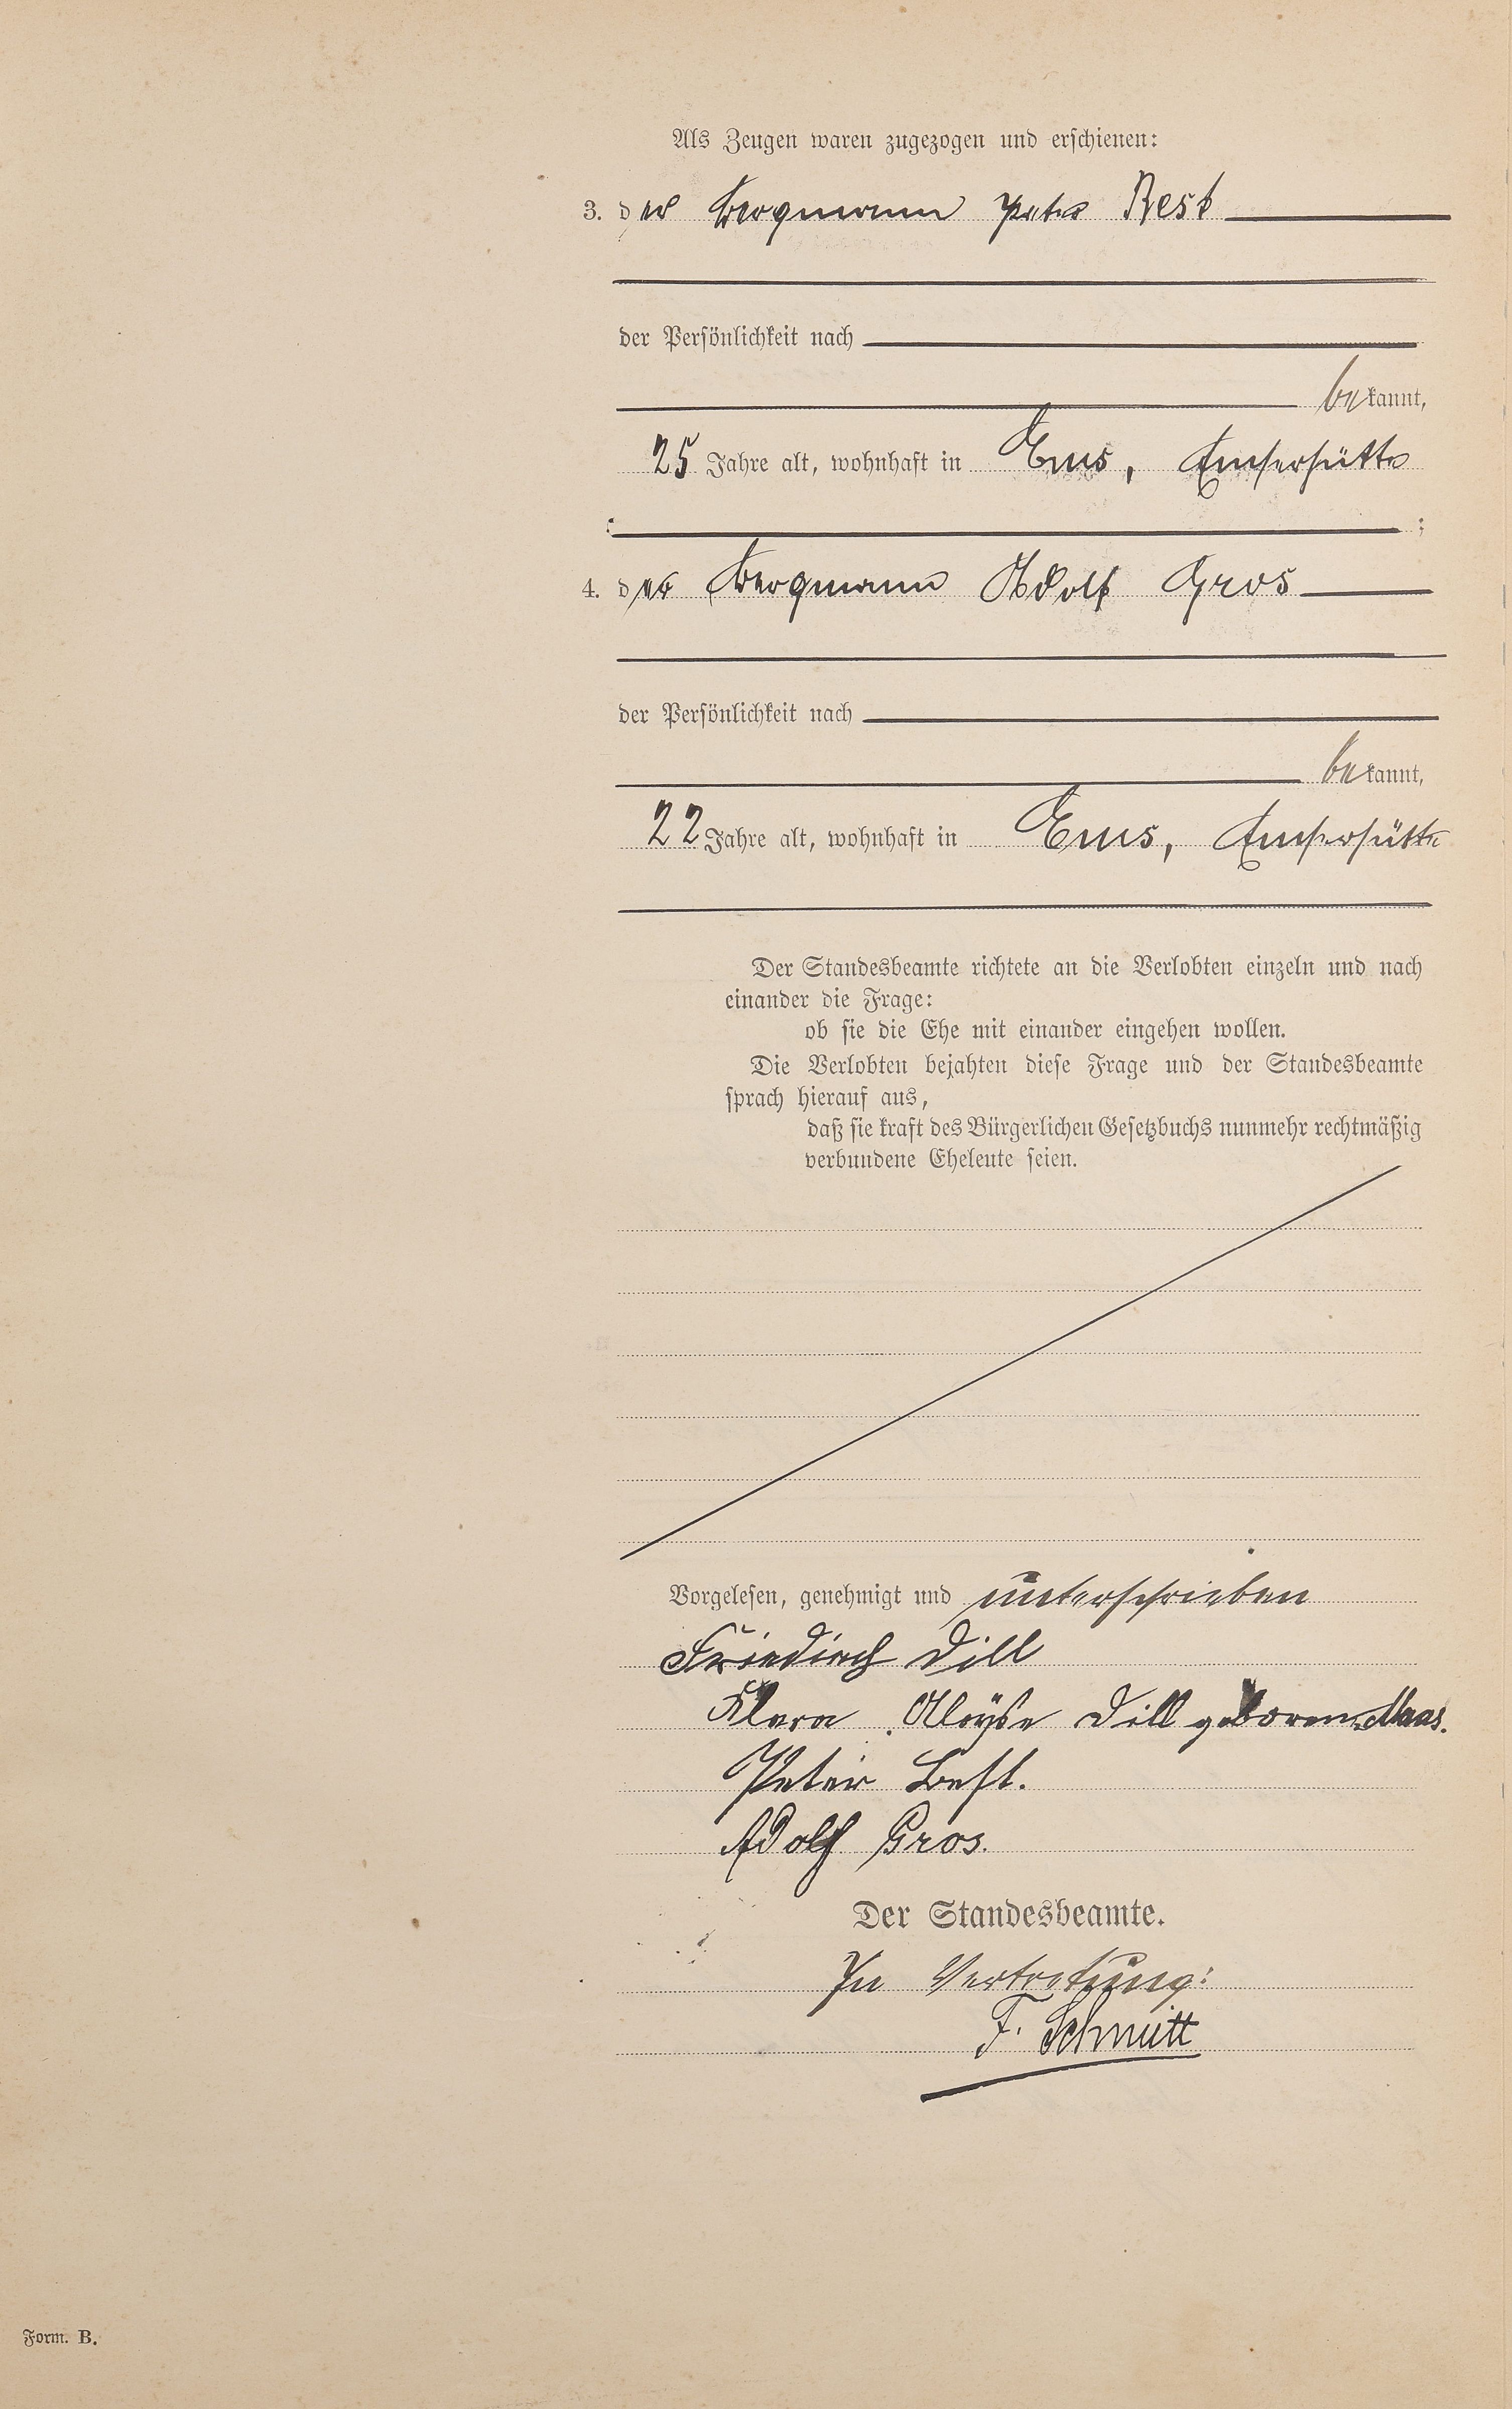 Als Zeugen waren zugezogen und erschienen:
3. der Bergmann Peter Best
der Persönlichkeit nach
bekannt,
25 Jahre alt, wohnhaft in Ems, Emserhütte
;
4. der Bergmann Adolf Gros
der Persönlichkeit nach
bekannt,
22 Jahre alt, wohnhaft in Ems, Emserhütte
Der Standesbeamte richtete an die Verlobten einzeln und nach
einander die Frage:
ob sie die Ehe mit einander eingehen wollen.
Die Verlobten bejahten diese Frage und der Standesbeamte
sprach hierauf aus,
daß sie kraft des Bürgerlichen Gesetzbuchs nunmehr rechtmäßig
verbundene Eheleute seien.
Vorgelesen, genehmigt und unterschrieben
Friedirch Dill
Klara Dill geborene Maas.
Peter Best.
Adolf Gros.
Der Standesbeamte.
In Vertretung:
F. Schmitt
Form. B.